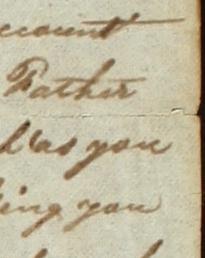 ccount
Father
as you
ing you